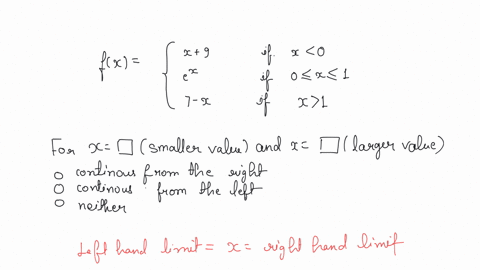 f(x) = { x+9 if x<0
e^x if 0≤x≤1
7-x if x>1
For x=□ (smaller value) and x= □ (larger value)
○ continous from the right
○ continous from the left
○ neither
Left hand limit = x = right hand limit